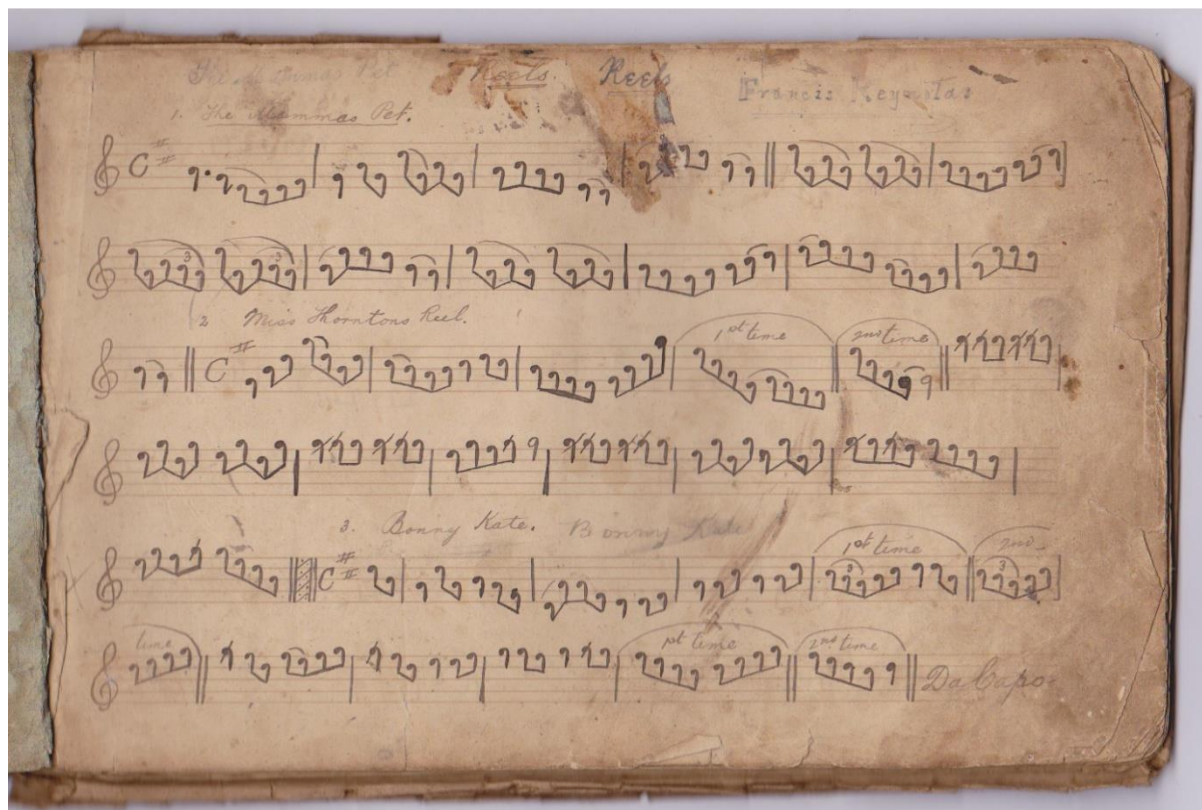 The Mammas Pet Reels. Reels Francis Reynolds
1. The Mammas Pet.
3 3
2 Miss Thorntons Reel.
1st time 2nd time
3. Bonny Kate. Bonny Kate
1st time 2nd
3 3
time 1st time 2nd time Da Capo